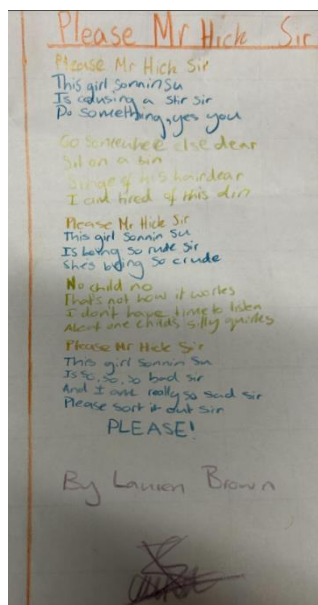 Please Mr Hick Sir
Please Mr Hick Sir
This girl sonnin Su
Is causing a stir sir
Do something, yes you
Go somewhere else dear
Sit on a bin
of his hair dear
I am tired of this din
Please Mr Hick Sir
This girl Sonnin Su
Is being so rude sir
Shes being so crude
No child no
That's not how it works
I don't have time to listen
About one childs silly quirkes
Please Mr Hick Sir
This girl sonnin Su
Is so, so, so bad sir
And I am really so sad sir
Please sort it out sir
PLEASE!
By Lauren Brown